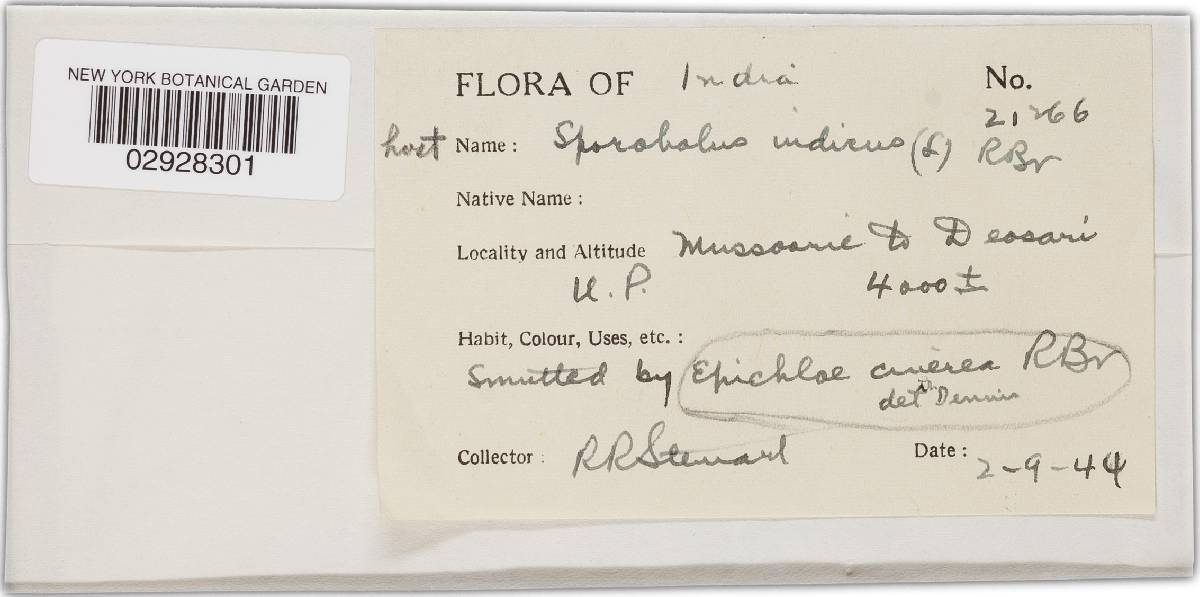 NEW YORK BOTANICAL GARDEN
02928301
FLORA OF India No.
21266
host Name : Sporobolus indicus (L) RBr
Native Name :
Locality and Altitude Mussoorie to Deosari
U. P. 4000 ±
Habit, Colour, Uses, etc. :
Smutted by Epichloe cinerea RBr
det Dennis
Collector : RRStewart Date : 2-9-44